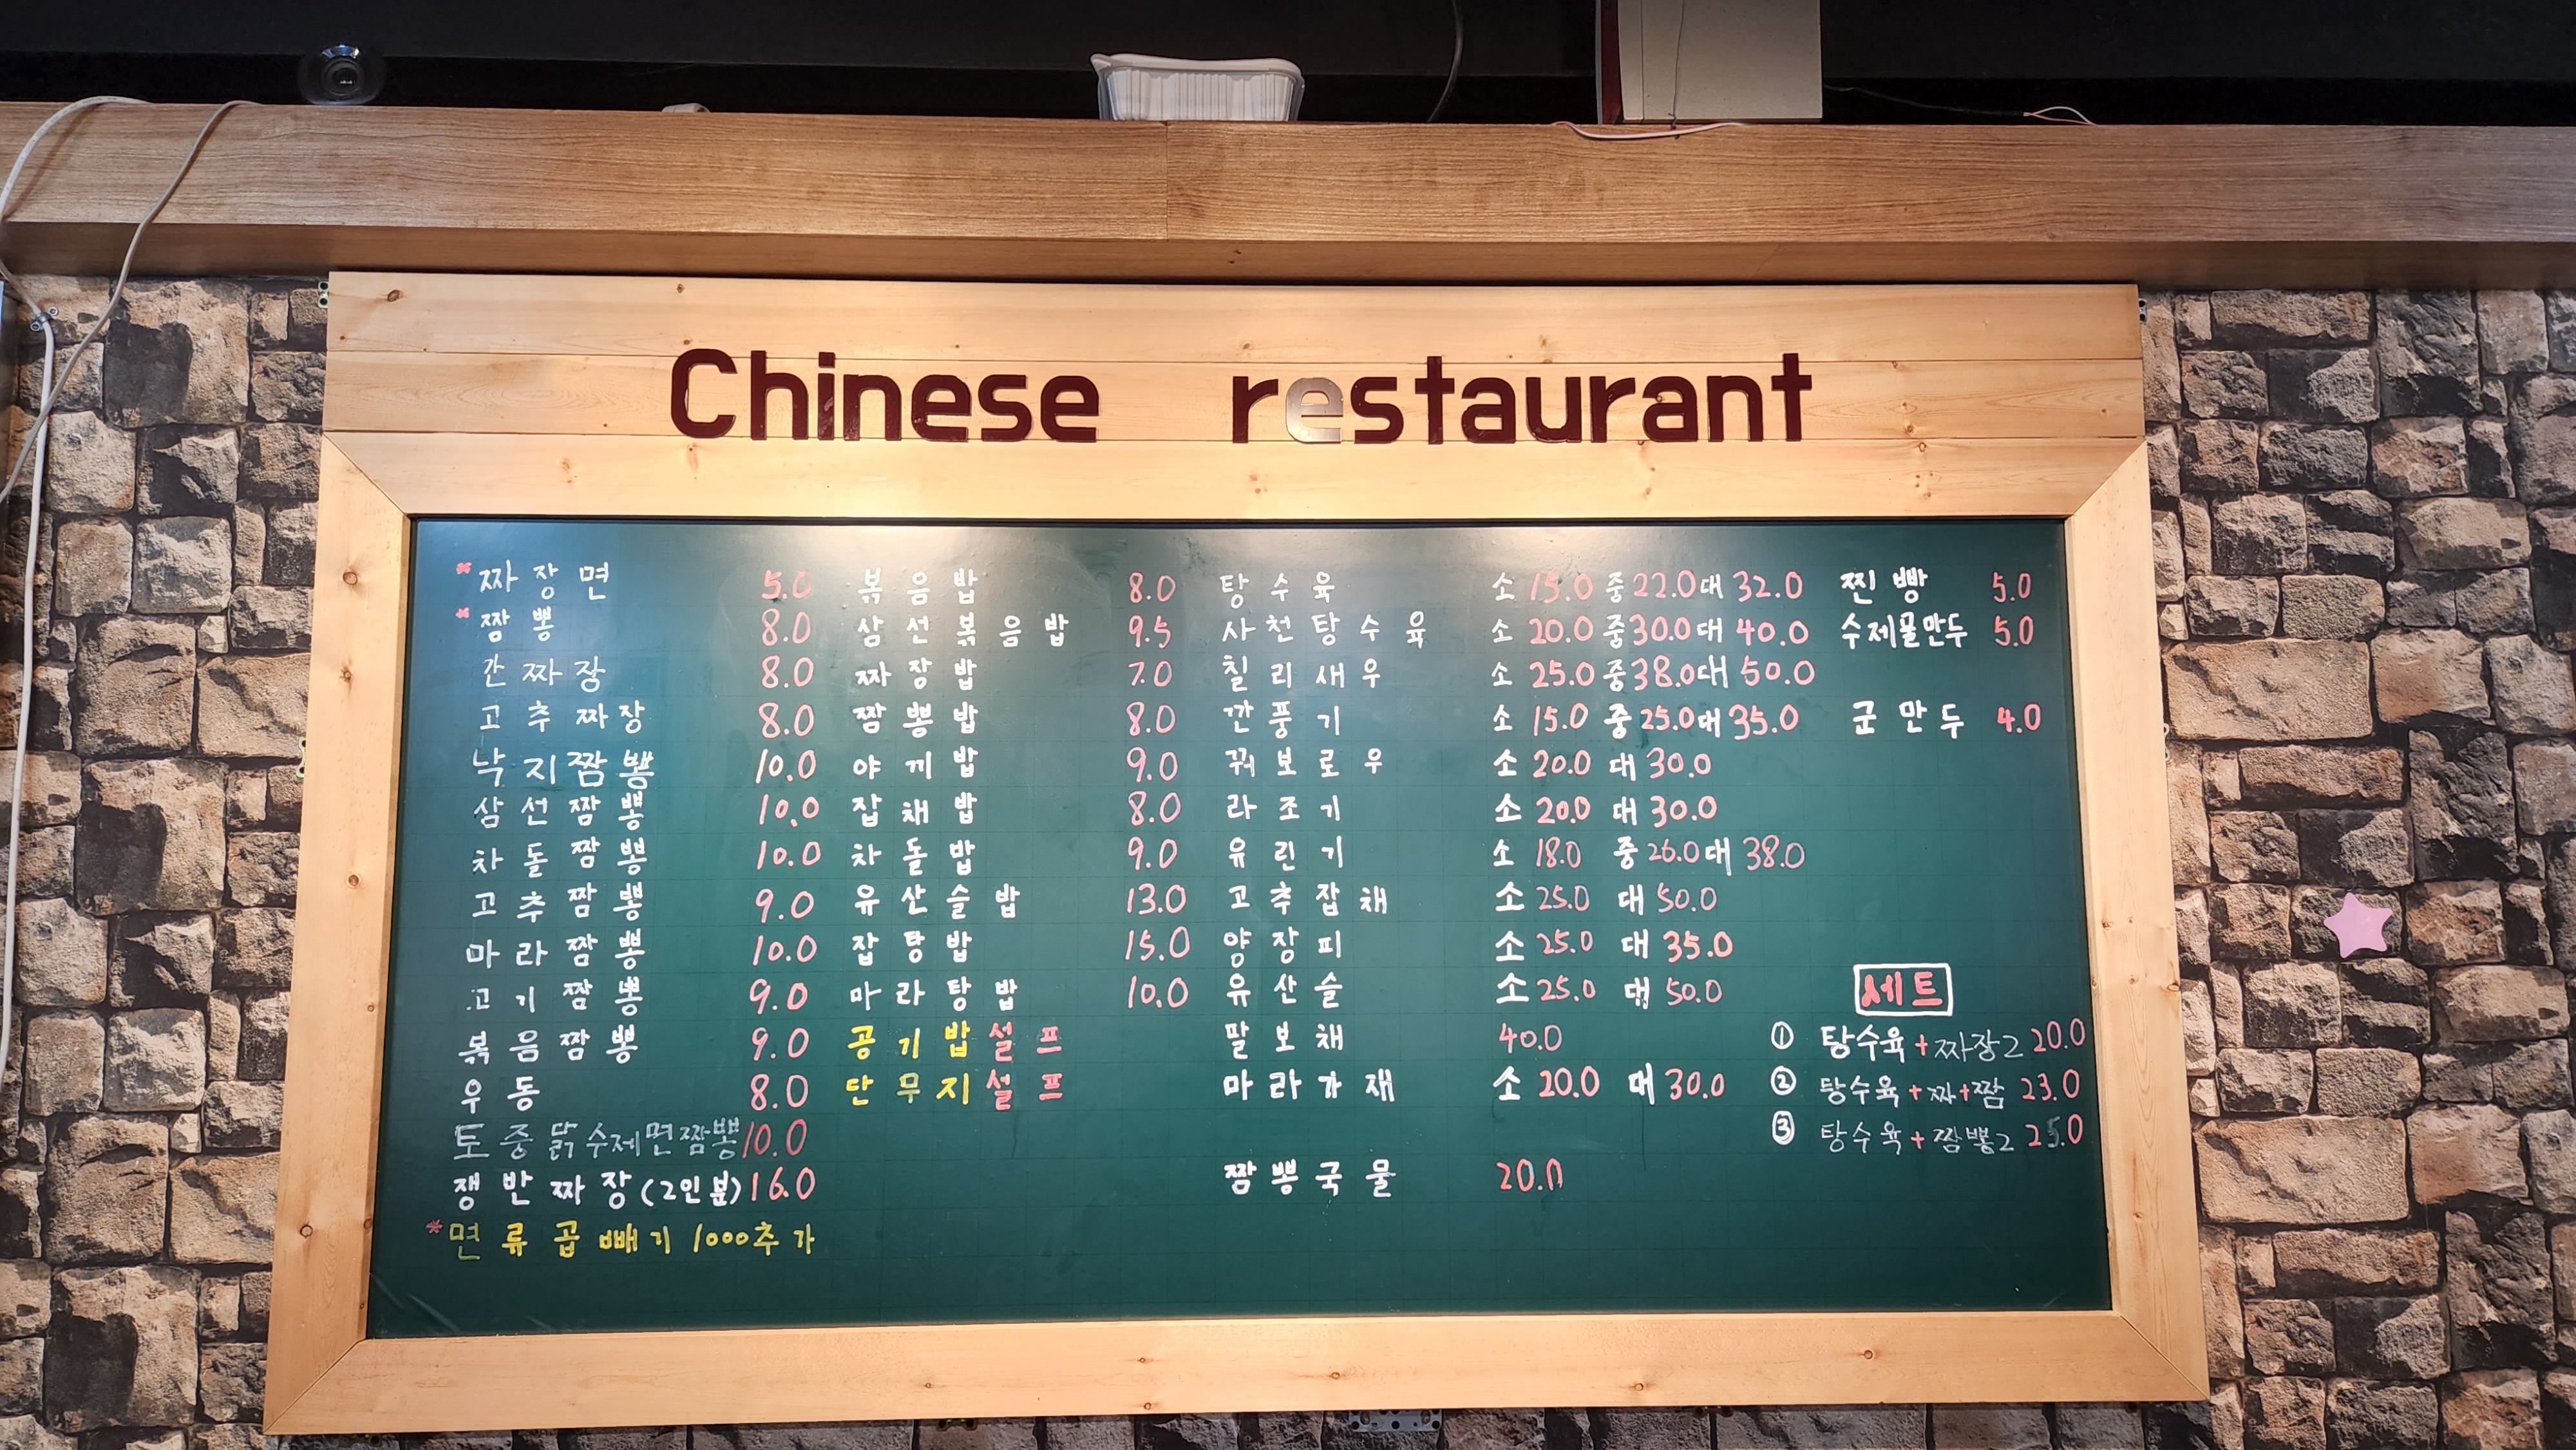 Chinese restaurant
*짜장면 5.0
*짬뽕 8.0
간짜장 8.0
고추짜장 8.0
낙지짬뽕 10.0
삼선짬뽕 10.0
차돌짬뽕 10.0
고추짬뽕 9.0
마라짬뽕 10.0
고기짬뽕 9.0
볶음짬뽕 9.0
우동 8.0
토중닭수제면짬뽕 10.0
쟁반짜장(2인분) 16.0
*면류곱빼기 1000추가
볶음밥 8.0
삼선볶음밥 9.5
짜장밥 7.0
짬뽕밥 8.0
야끼밥 9.0
잡채밥 8.0
차돌밥 9.0
유산슬밥 13.0
잡탕밥 15.0
마라탕밥 10.0
공기밥설프
단무지설프
탕수육 소 15.0 중 22.0 대 32.0
사천탕수육 소 20.0 중 30.0 대 40.0
칠리새우 소 25.0 중 38.0 대 50.0
깐풍기 소 15.0 중 25.0 대 35.0
꿔보로우 소 20.0 대 30.0
라조기 소 20.0 대 30.0
유린기 소 18.0 중 26.0 대 38.0
고추잡채 소 25.0 대 50.0
양장피 소 25.0 대 35.0
유산슬 소 25.0 대 50.0
팔보채 40.0
마라가재 소 20.0 대 30.0
짬뽕국물 20.0
찐빵 5.0
수제물만두 5.0
군만두 4.0
세트
① 탕수육+짜장2 20.0
② 탕수육+짜+짬 23.0
③ 탕수육+짬뽕2 25.0